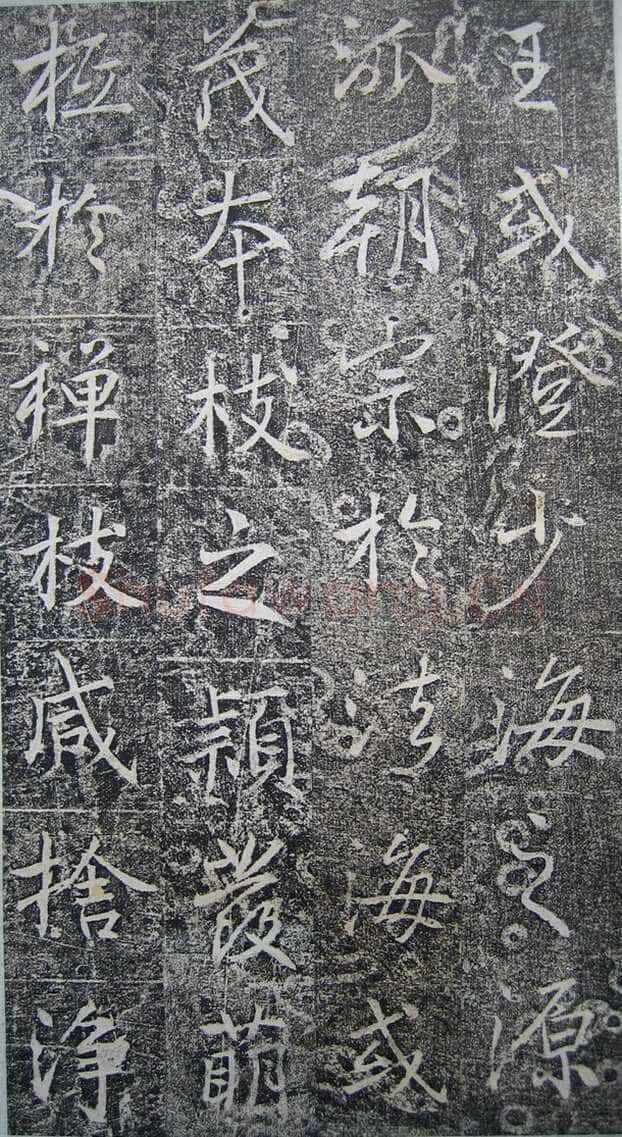 王或澄少海之源
派朝宗於法海或
茂本枝之穎發萌
柢於禪枝咸捨淨
shufawang.CN